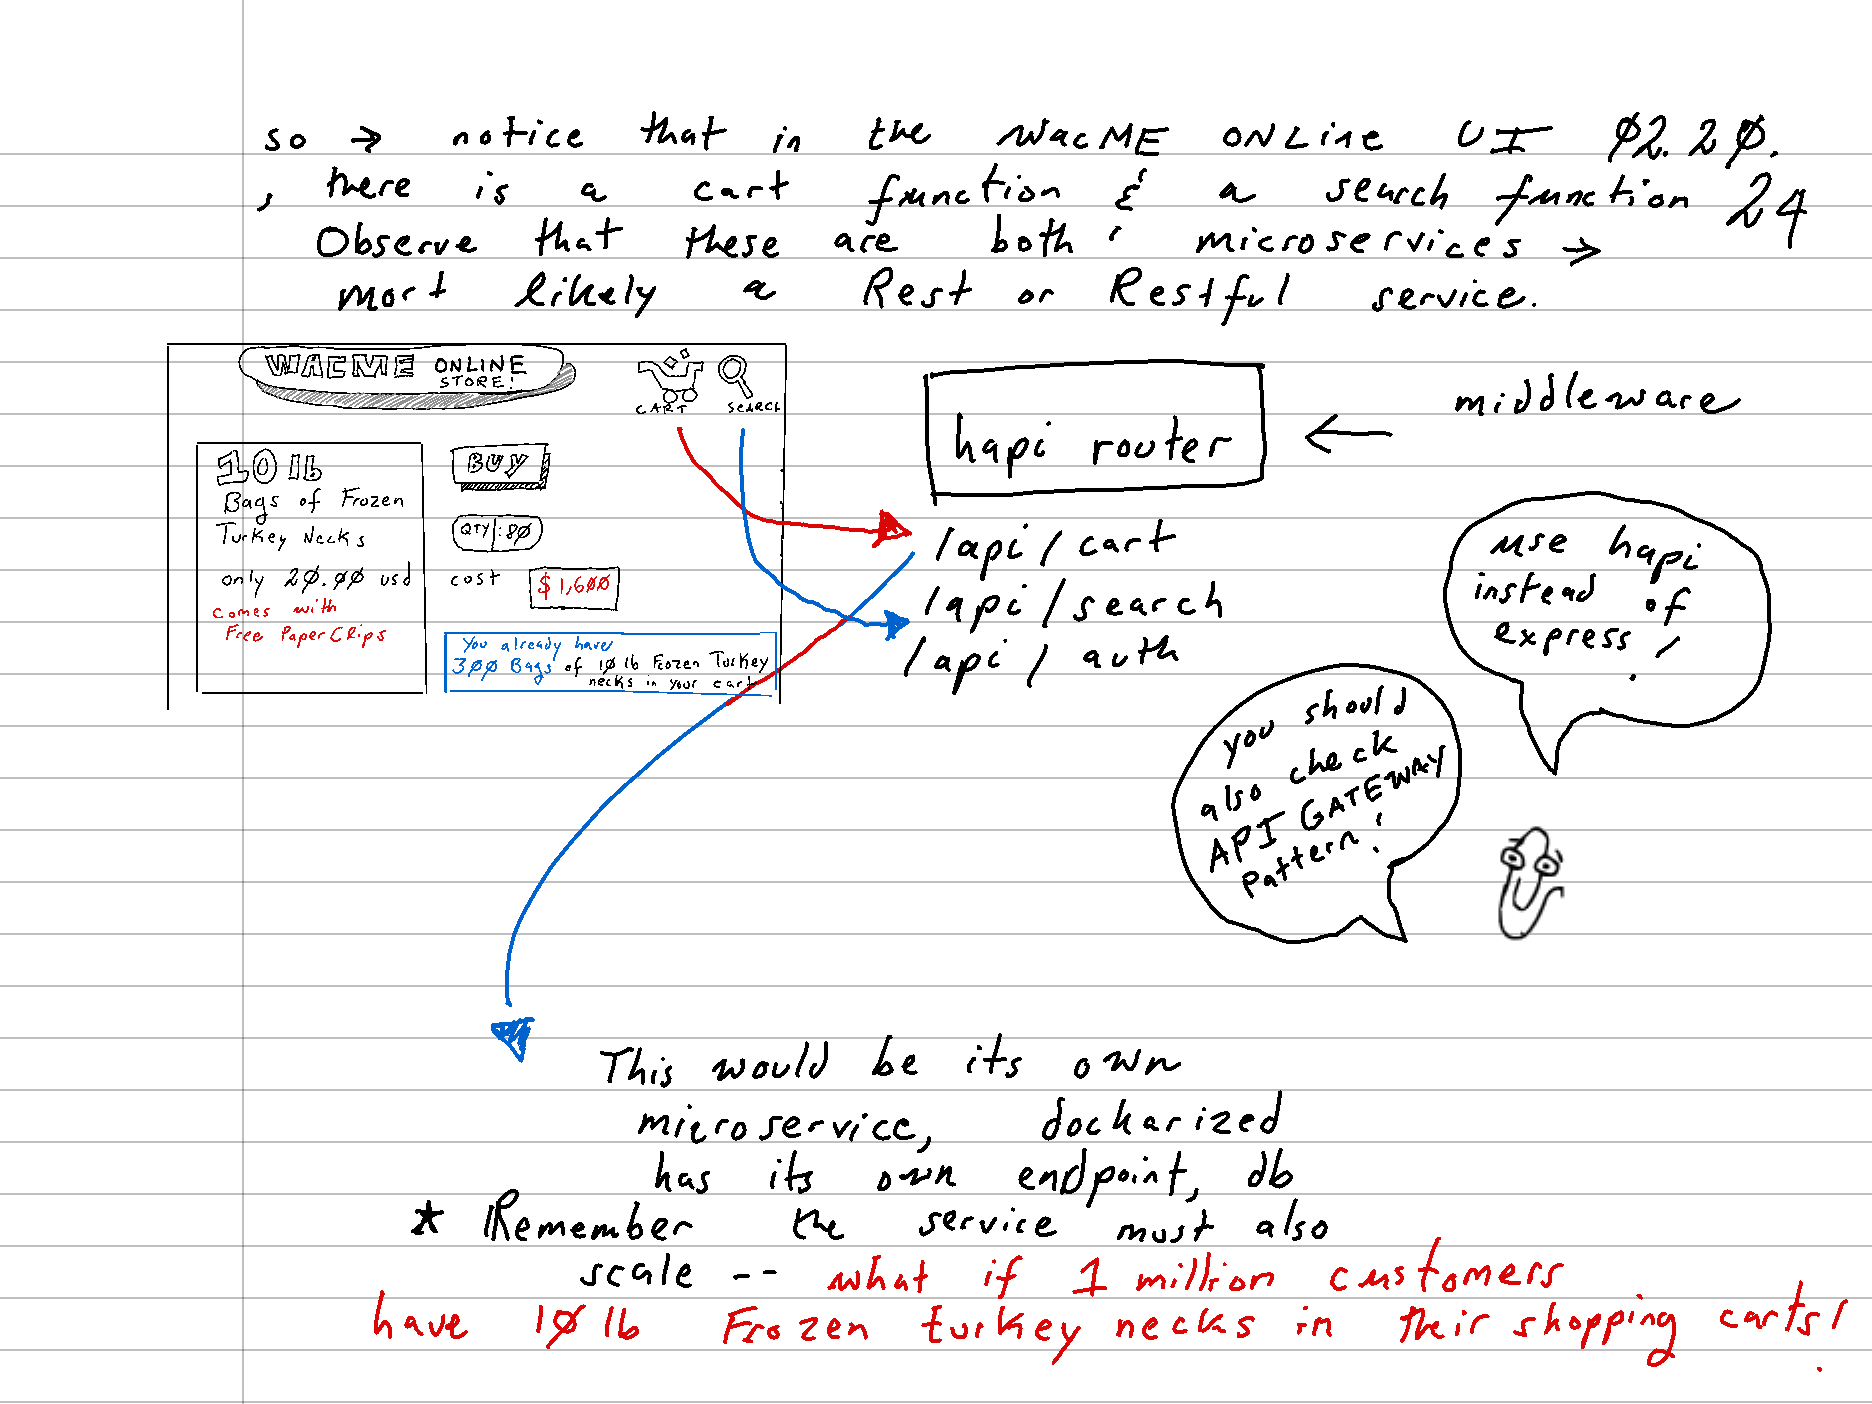 so → notice that in the WACME ONLine UI 02.20.
, there is a cart function & a search function 24
Observe that these are both microservices →
most likely a Rest or Restful service.
WACME ONLINE
STORE!
CART SEARCH
10 lb
Bags of Frozen
Turkey Necks
only 20.00 usd
comes with
Free PaperClips
BUY
QTY: 80
cost $1,600
You already have
300 Bags of 10 lb Frozen Turkey
necks in your cart
hapi router
← middleware
/api/cart
/api/search
/api/auth
use hapi
instead of
express!
you should
also check
API GATEWAY
Pattern!
This would be its own
microservice, dockarized
has its own endpoint, db
* Remember the service must also
scale -- what if 1 million customers
have 10 lb Frozen turkey necks in their shopping carts!